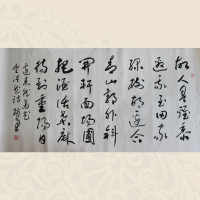 故人具鸡黍
邀我至田家
绿树村边合
青山郭外斜
开轩面场圃
把酒话桑麻
待到重阳日
还来就菊花